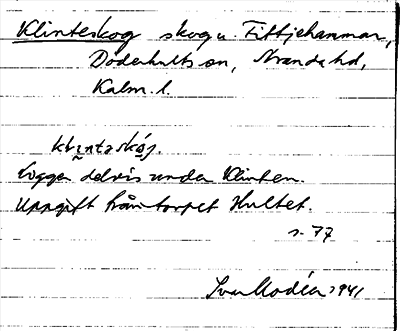 Klinteskog skog u. Fittjehammar,
Döderhults sn, Stranda hd,
Kalm. l.
klintaskóg.
Ligger delvis under Klinten.
Uppgift från torpet Hultet.
s. 77
Ivar Modéer 1941